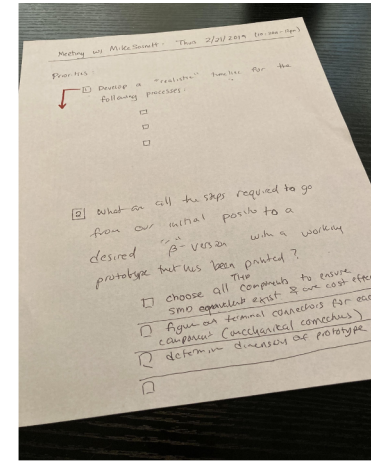 Meeting w/ Mike - Thurs 2/21/2019
Priorities:
1 Develop a "realistic" timeline for the
following processes:
2 What are all the steps required to go
from our initial posito to a
desired "β" version with a working
prototype that has been printed?
choose all THD components to ensure
SMD equivalents exist & are cost effec
figure out terminal connectors for eac
component (mechanical connectors)
determine dimension of prototype